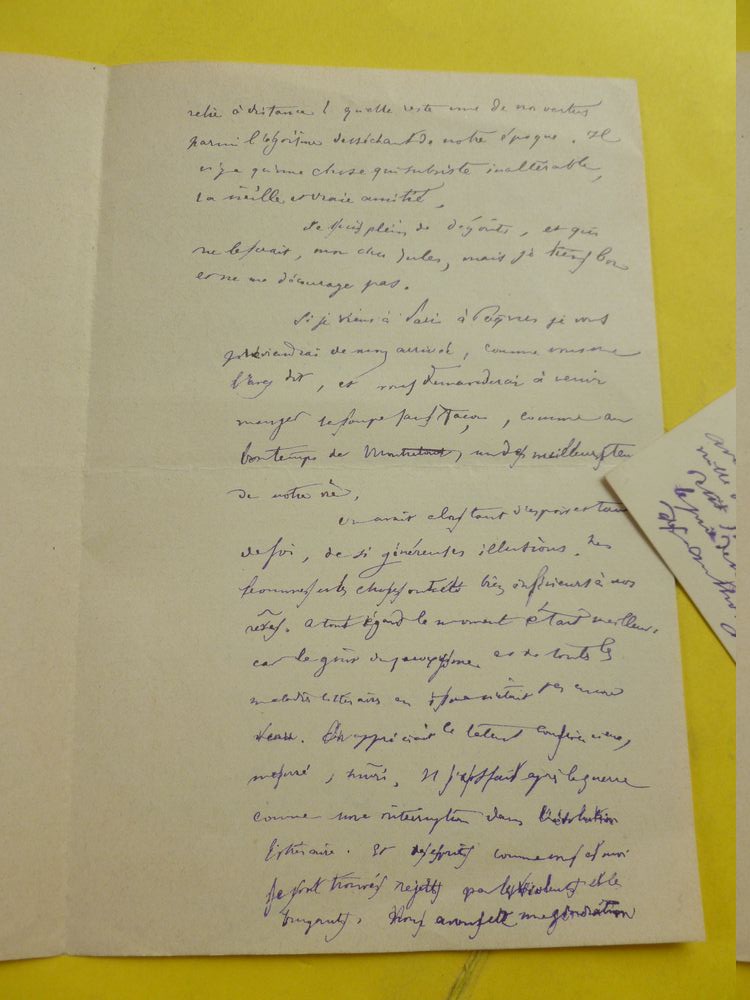 relie à distance ! quelle reste une de nos vertus
parmi l'égoïsme desséchant de notre époque. Il
n'y a qu'une chose qui subsiste inaltérable,
la vieille et vraie amitié.
Je suis plein de dégoûts, et qui
ne le serait, mon cher Jules, mais je tiens bon
et ne me décourage pas.
Si je viens à Paris à Pâques je vous
préviendrai de mon arrivée, comme vous me
l'avez dit, et vous demanderai à venir
manger la soupe sans façon, comme au
bon temps de un des meilleurs
de notre vie.
On avait alors tant d'espoirs et tant
de foi, de si généreuses illusions. Les
hommes et les choses ont été bien inférieurs à nos
rêves. A tout égard le moment était meilleur,
car le goût du et de toutes les
maladies littéraires en n'était pas encore
On appréciait le talent consciencieux,
mesuré, mûri. Il s'est fait après la guerre
comme une interruption dans l'évolution
littéraire. Et des esprits comme vous et moi
se sont trouvés rejetés par les violents et les
Nous avons été une génération